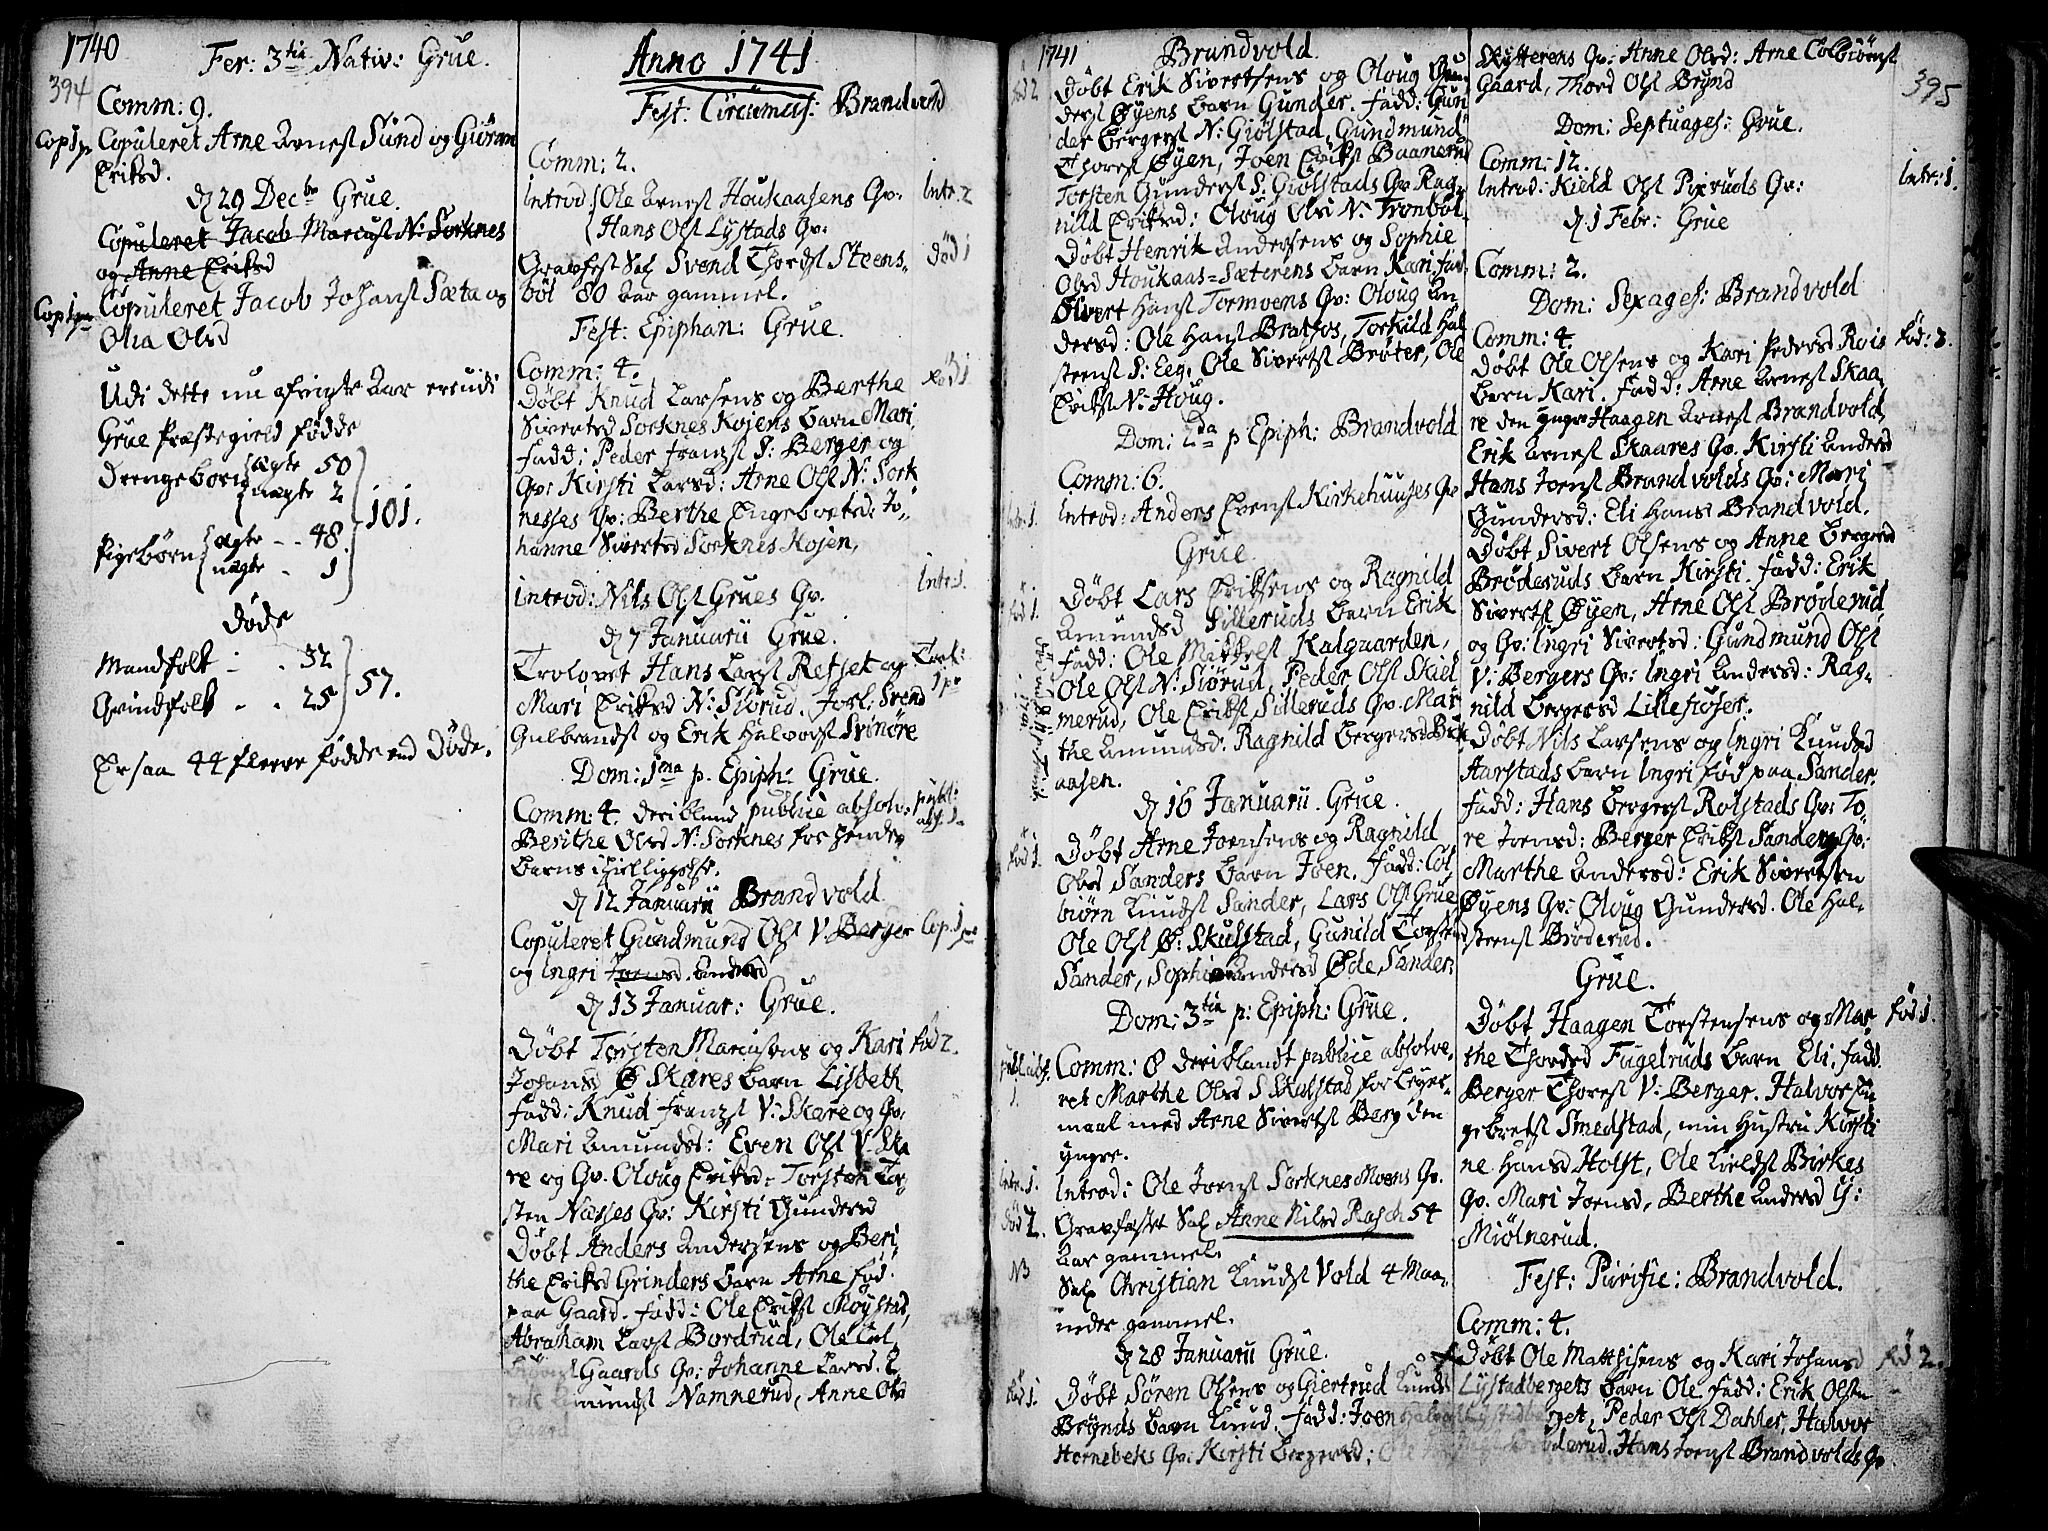 1740
394
Fer: 3tia Nativ: Grue.
Comm: 9.
Cop 1 pr
Copuleret Arne Arnesl Sund og Guren
Eriksd.
d 29 Decbr Grue.
Copuleret Jacob Marcusl N: Sorknes
og Anne Eriksd
Cop 1 pr
Copuleret Jacob Johansl Sæta og
Olia Olsd
Udi dette nu afvigte Aar ere udi
Grue Præstegield fødde
Drengebørn ægte 50
uægte 2
101.
Pigebørn ægte - - 48
uægte - 1
Døde
Mandfolk - . 32
57.
Qvindfolk - . 25
Er saa 44 fleere fødde end Døde.
Anno 1741
Fest: Circumcis: Brandvold
Comm: 2.
Introd: Ole Arnesl Houkaasens Qv:
Intr: 2
Hans Olsl Lystads Qv:
Gravfest Sal Svend Thordsl Steens-
Død 1
bøl 80 Aar gammel.
Fest: Epiphan: Grue.
Comm: 4.
Fød 1
Døbt Knud Larsens og Berthe
Sivertsd Sorknes Kojens barn Mari,
Fadd: Peder Franzsl S: Berger og
Qv: Kirsti Larsd: Arne Olsl N: Sork
nesses Qv: Berthe Engebretsd: Jo-
hanne Sivertsd Sorknes Kojen,
Introd: Nils Olsl Grues Qv.
Intr: 1.
d 7 Januarii Grue.
Trolovet Hans Larsl Retset og
Trol: 1 pr
Mari Eriksd N: Siørud. Forl: Svend
Gulbrandsl og Erik Halvorsl Svinøre
Dom: 1ma p. Epiph: Grue.
Comm: 4. deribland publice absolv:
publ: abs. 1.
Berithe Olsd N: Sorknes for hendes
barns ihielliggelse.
d 12 Januarii Brandvold
Copuleret Gundmund Olsl V: Berger
Cop. 1 pr
og Ingri Joensd. Andersd
d 13 Januar: Grue.
Døbt Torsten Marcusens og Kari
Fød 2.
Johansd Ø Skares barn Lisbeth
Fadd: Knud Franzsl V: Skare og Qv:
Mari Amundsd: Even Olsl V: Ska
re og Qv. Oloug Eriksd: Torsten Tor
sten Næsses Qv: Kirsti Gundersd
Døbt Anders Andersens og Beri
the Eriksd Grinders barn Arne fød
paa Gaard. Fadd: Ole Eriksl Møystad,
Abraham Larsl Bordrud, Ole Col
biørnsl Gaards Qv: Johanne Larsd. E
rik Amundsl Namnerud, Anne Olsd
Gaard
1741
Brandvold.
Fød 2
Døbt Erik Sivertsens og Oloug Gun-
dersl Øyens barn Gunder. Fadd: Gun
der Bergersl N: Giølstad, Gundmund
Thoresl Øyen, Joen Eriksl Baanerud
Torsten Gundersl S: Giølstads Qv: Rag-
nild Eriksd: Oloug Olsd N: Tronbøl.
Døbt Henrik Andersens og Sophie
Olsd Houkaas=Sæterens barn Kari. Fad:
Sivert Hansl Tormoens Qv: Oloug An
dersd: Ole Hansl Bratfos, Torkild Hal
steensl S: Eeg, Ole Sivertsl Brøter, Ole
Eriksl N: Houg.
Dom: 2da p Epiph: Brandvold
Comm: 6.
Intr: 1.
Introd: Anders Evensl Kirkehuuses Qv
Grue
Fød 1.
Døbt Lars Eriksens og Ragnild
Amundsd Silleruds barn Erik
Fadd: Ole Mikkelsl Kalgaarden,
Ole Olsl N: Siørud, Peder Olsl Skul
merud, Ole Eriksl Silleruds Qv: Mar
the Amundsd. Ragnild Bergersd Buk
aasen.
d 16 Januarii Grue.
Fød 1.
Døbt Arne Joensens og Ragnild
Olsd Sanders barn Joen. Fadd: Col
biørn Knudsl Sander, Lars Olsl Grue
Ole Olsl Ø: Skulstad, Gunild Torstensd
Sander, Sophi Andersd Øde Sander.
Dom: 3tia p: Epiph: Grue.
publ. abs. 1.
Comm: 8 deriblandt publice absolve-
ret Marthe Olsd S Skolstad for Leyer-
maal med Arne Sivertsl Berg den
yngre.
Intr: 1.
Introd: Ole Joensl Sorknes Moens Qv.
Død 2.
Gravfæstet Sal Anne Nilsd Rasch 54
Aar gammel.
NB
Sal Christian Knudsl Vold 4 Maa-
neder gammel.
d 28 Januarii Grue.
Fød 1.
Døbt Søren Olsens og Giertrud Knuds
Brynds barn Knud. Fadd: Joen
Hornebeks Qv: Kirsti Bergersd:
Rytterens Qv: Anne Olsd: Arne Colbiørnsl
Gaard, Thord Olsl Brynd
395
Dom: Septuages: Grue.
Comm: 12.
Introd: Kield Olsl Pixruds Qv:
Intr: 1.
d 1 Febr: Grue
Comm: 2.
Dom: Sexages: Brandvold
Comm: 4.
Fød: 3.
Døbt Ole Olsens og Kari Pedersd Rois
barn Kari. Fadd: Arne Arnesl Skaa-
re den yngre Haagen Arnesl Brandvold,
Erik Arnesl Skaares Qv. Kirsti Andersd
Hans Joensl Brandvolds Qv: Mari
Gundersd: Eli Hansd Brandvold.
Døbt Sivert Olsens og Anne Bergersd
Brøderuds barn Kirsti. Fadd: Erik
Sivertsl Øyen, Arne Olsl Brøderud
og Qv: Ingri Sivertsd: Gundmund Olsl
V: Bergers Qv: Ingri Andersd: Rag-
nild Bergersd Lillefloser.
Døbt Nils Larsens og Ingri Knudsd
Aarstads barn Ingri fød paa Sander.
Fadd: Hans Bergersl Rolstads Qv: To-
re Joensd: Berger Eriksl Sanders Qv:
Marthe Andersd: Erik Sivertsten
Øyens Qv: Oloug Gundersd. Ole Hal-
steensl Brøderud.
Grue.
Døbt Haagen Torstensens og Mar-
Fød 1.
the Thordsd Fugelruds barn Eli. Fadd
Berger Thoresl V: Berger. Halvor En
gebretsl Smedstad, min Hustru Kirsti
ne Hansd Holst, Ole Kieldsl Birkes
Qv. Mari Joensd, Berthe Andersd
Miølnerud.
Fest: Purific: Brandvold.
Comm: 4.
Døbt Ole Matthisens og Kari Johansd
Fød 2.
Lystadbergets barn Ole Fadd: Erik Olsen
Lystadberget, Peder Olsl Dahler, Halvor
Brøderud. Hans Joensl Brandvolds Qv